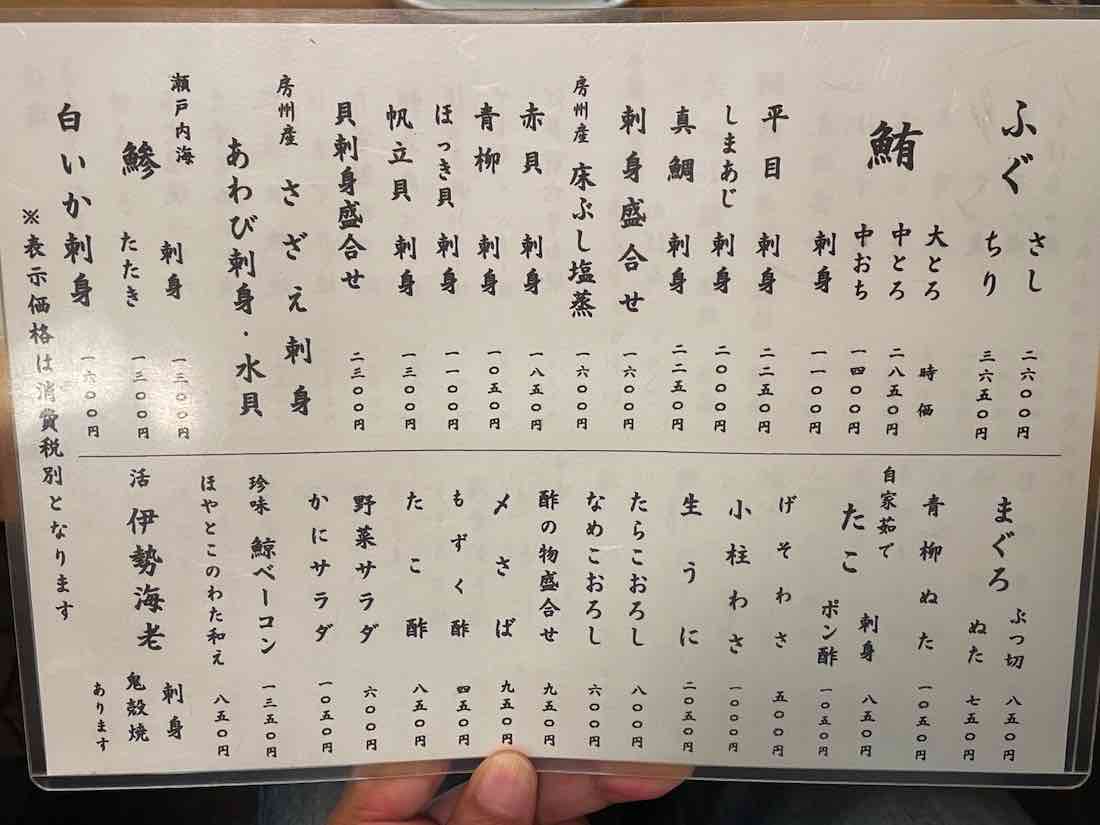 ふぐ さし 二六〇〇円
ちり 三六五〇円
鮪 大とろ 時価
中とろ 二八五〇円
中おち 一四〇〇円
刺身 一一〇〇円
平目 刺身 二二五〇円
しまあじ 刺身 二〇〇〇円
真鯛 刺身 二二五〇円
刺身盛合せ 一六〇〇円
房州産 床ぶし塩蒸 一六〇〇円
赤貝 刺身 一八五〇円
青柳 刺身 一〇五〇円
ほっき貝 刺身 一一〇〇円
帆立貝 刺身 一三〇〇円
貝刺身盛合せ 二三〇〇円
房州産 さざえ刺身
あわび刺身・水貝
瀬戸内海 鰺 刺身 一三〇〇円
たたき 一三〇〇円
白いか刺身 一六〇〇円
まぐろ ぶつ切 八五〇円
ぬた 七五〇円
青柳ぬた 一〇五〇円
自家茹で たこ 刺身 八五〇円
ポン酢 一〇五〇円
げそわさ 五〇〇円
小柱わさ 一〇〇〇円
生うに 二〇五〇円
たらこおろし 八〇〇円
なめこおろし 六〇〇円
酢の物盛合せ 九五〇円
〆さば 九五〇円
もずく酢 四五〇円
たこ酢 八五〇円
野菜サラダ 六〇〇円
かにサラダ 一〇五〇円
珍味 鯨ベーコン 一三五〇円
ほやとこのわた和え 八五〇円
活 伊勢海老 刺身
鬼殻焼
あります
※表示価格は消費税別となります